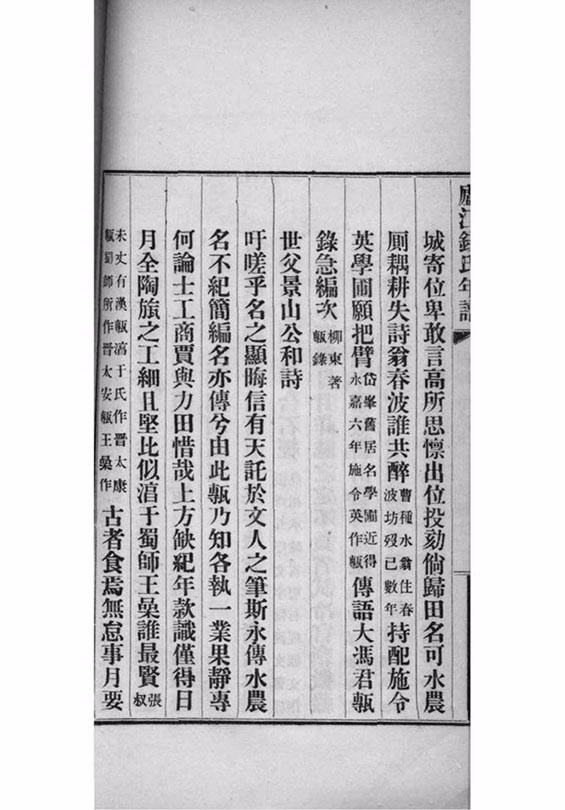 廬江錢氏年譜
城寄位卑敢言高所思懔出位投劾倘歸田名可水農
厠耦耕失詩翁春波誰共醉曹種水翁住春波坊歿已數年持配施令
英學圃願把臂岱峯舊居名學圃近得永嘉六年施令英作甎傳語大馮君甎
錄急編次柳東著甎錄
世父景山公和詩
吁嗟乎名之顯晦信有天託於文人之筆斯永傳水農
名不紀簡編名亦傳兮由此甎乃知各執一業果靜專
何論士工商賈與力田惜哉上方缺紀年款識僅得日
月全陶旊之工細且堅比似湻于蜀師王誰最賢張叔
未丈有漢甎湻于氏作晉太康甎蜀師所作晉太安甎王作古者食焉無怠事月要